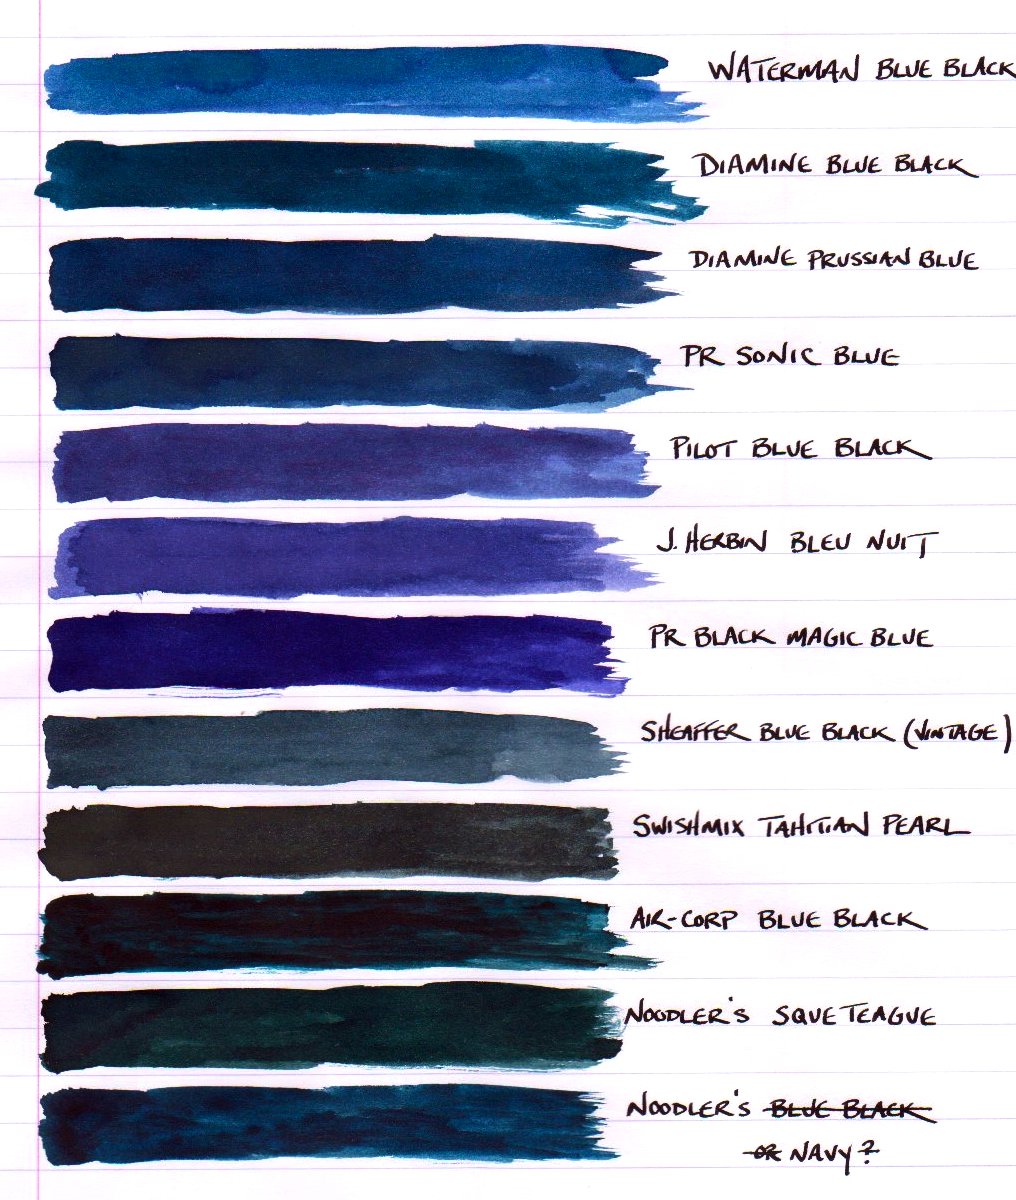 WATERMAN BLUE BLACK
DIAMINE BLUE BLACK
DIAMINE PRUSSIAN BLUE
PR SONIC BLUE
PILOT BLUE BLACK
J. HERBIN BLEU NUIT
PR BLACK MAGIC BLUE
SHEAFFER BLUE BLACK (VINTAGE)
SWISHMIX TAHITIAN PEARL
AIR-CORP BLUE BLACK
NOODLER'S SQUETEAGUE
NOODLER'S BLUE BLACK
OR NAVY?